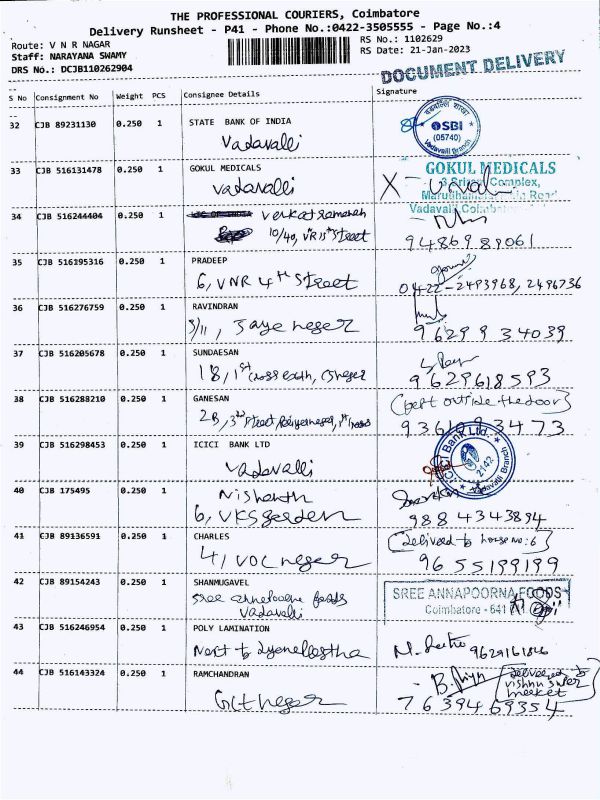 THE PROFESSIONAL COURIERS, Coimbatore
Delivery Runsheet - P41 - Phone No.:0422-3505555 - Page No.:4
Route: V N R NAGAR
RS No.: 1102629
Staff: NARAYANA SWAMY
RS Date: 21-Jan-2023
DRS No.: DCJB110262904
DOCUMENT DELIVERY
S No Consignment No Weight PCS Consignee Details Signature
32 CJB 89231130 0.250 1 STATE BANK OF INDIA
Vadavalli
SBI
(05740)
Vadavalli Branch
33 CJB 516131478 0.250 1 GOKUL MEDICALS
Vadavalli
GOKUL MEDICALS
Complex,
Road
Vadavalli
34 CJB 516244404 0.250 1 Venkatramanan
10/40, Street
9486989061
35 CJB 516195316 0.250 1 PRADEEP
6, VNR 4th Street
0422-2493968, 2496736
36 CJB 516276759 0.250 1 RAVINDRAN
3/11, Jaya neger
9629934039
37 CJB 516205678 0.250 1 SUNDAESAN
18, 1st cross
9629618593
38 CJB 516288210 0.250 1 GANESAN
2B, 3rd Street
(kept outside the door)
9361093473
39 CJB 516298453 0.250 1 ICICI BANK LTD
Vadavalli
ICICI Bank Ltd.
2142
Vadavalli Branch
40 CJB 175495 0.250 1 Nishanth
6, VKS garden
9884343894
41 CJB 89136591 0.250 1 CHARLES
41 VOC neger
(Delivered to house no: 6)
9655199199
42 CJB 89154243 0.250 1 SHANMUGAVEL
Sree annapoorna foods
Vadavalli
SREE ANNAPOORNA FOODS
Coimbatore - 641
43 CJB 516246954 0.250 1 POLY LAMINATION
Next to
9629161846
44 CJB 516143324 0.250 1 RAMCHANDRAN
Gct neger
delivered to
vishnu super
market
7639469354